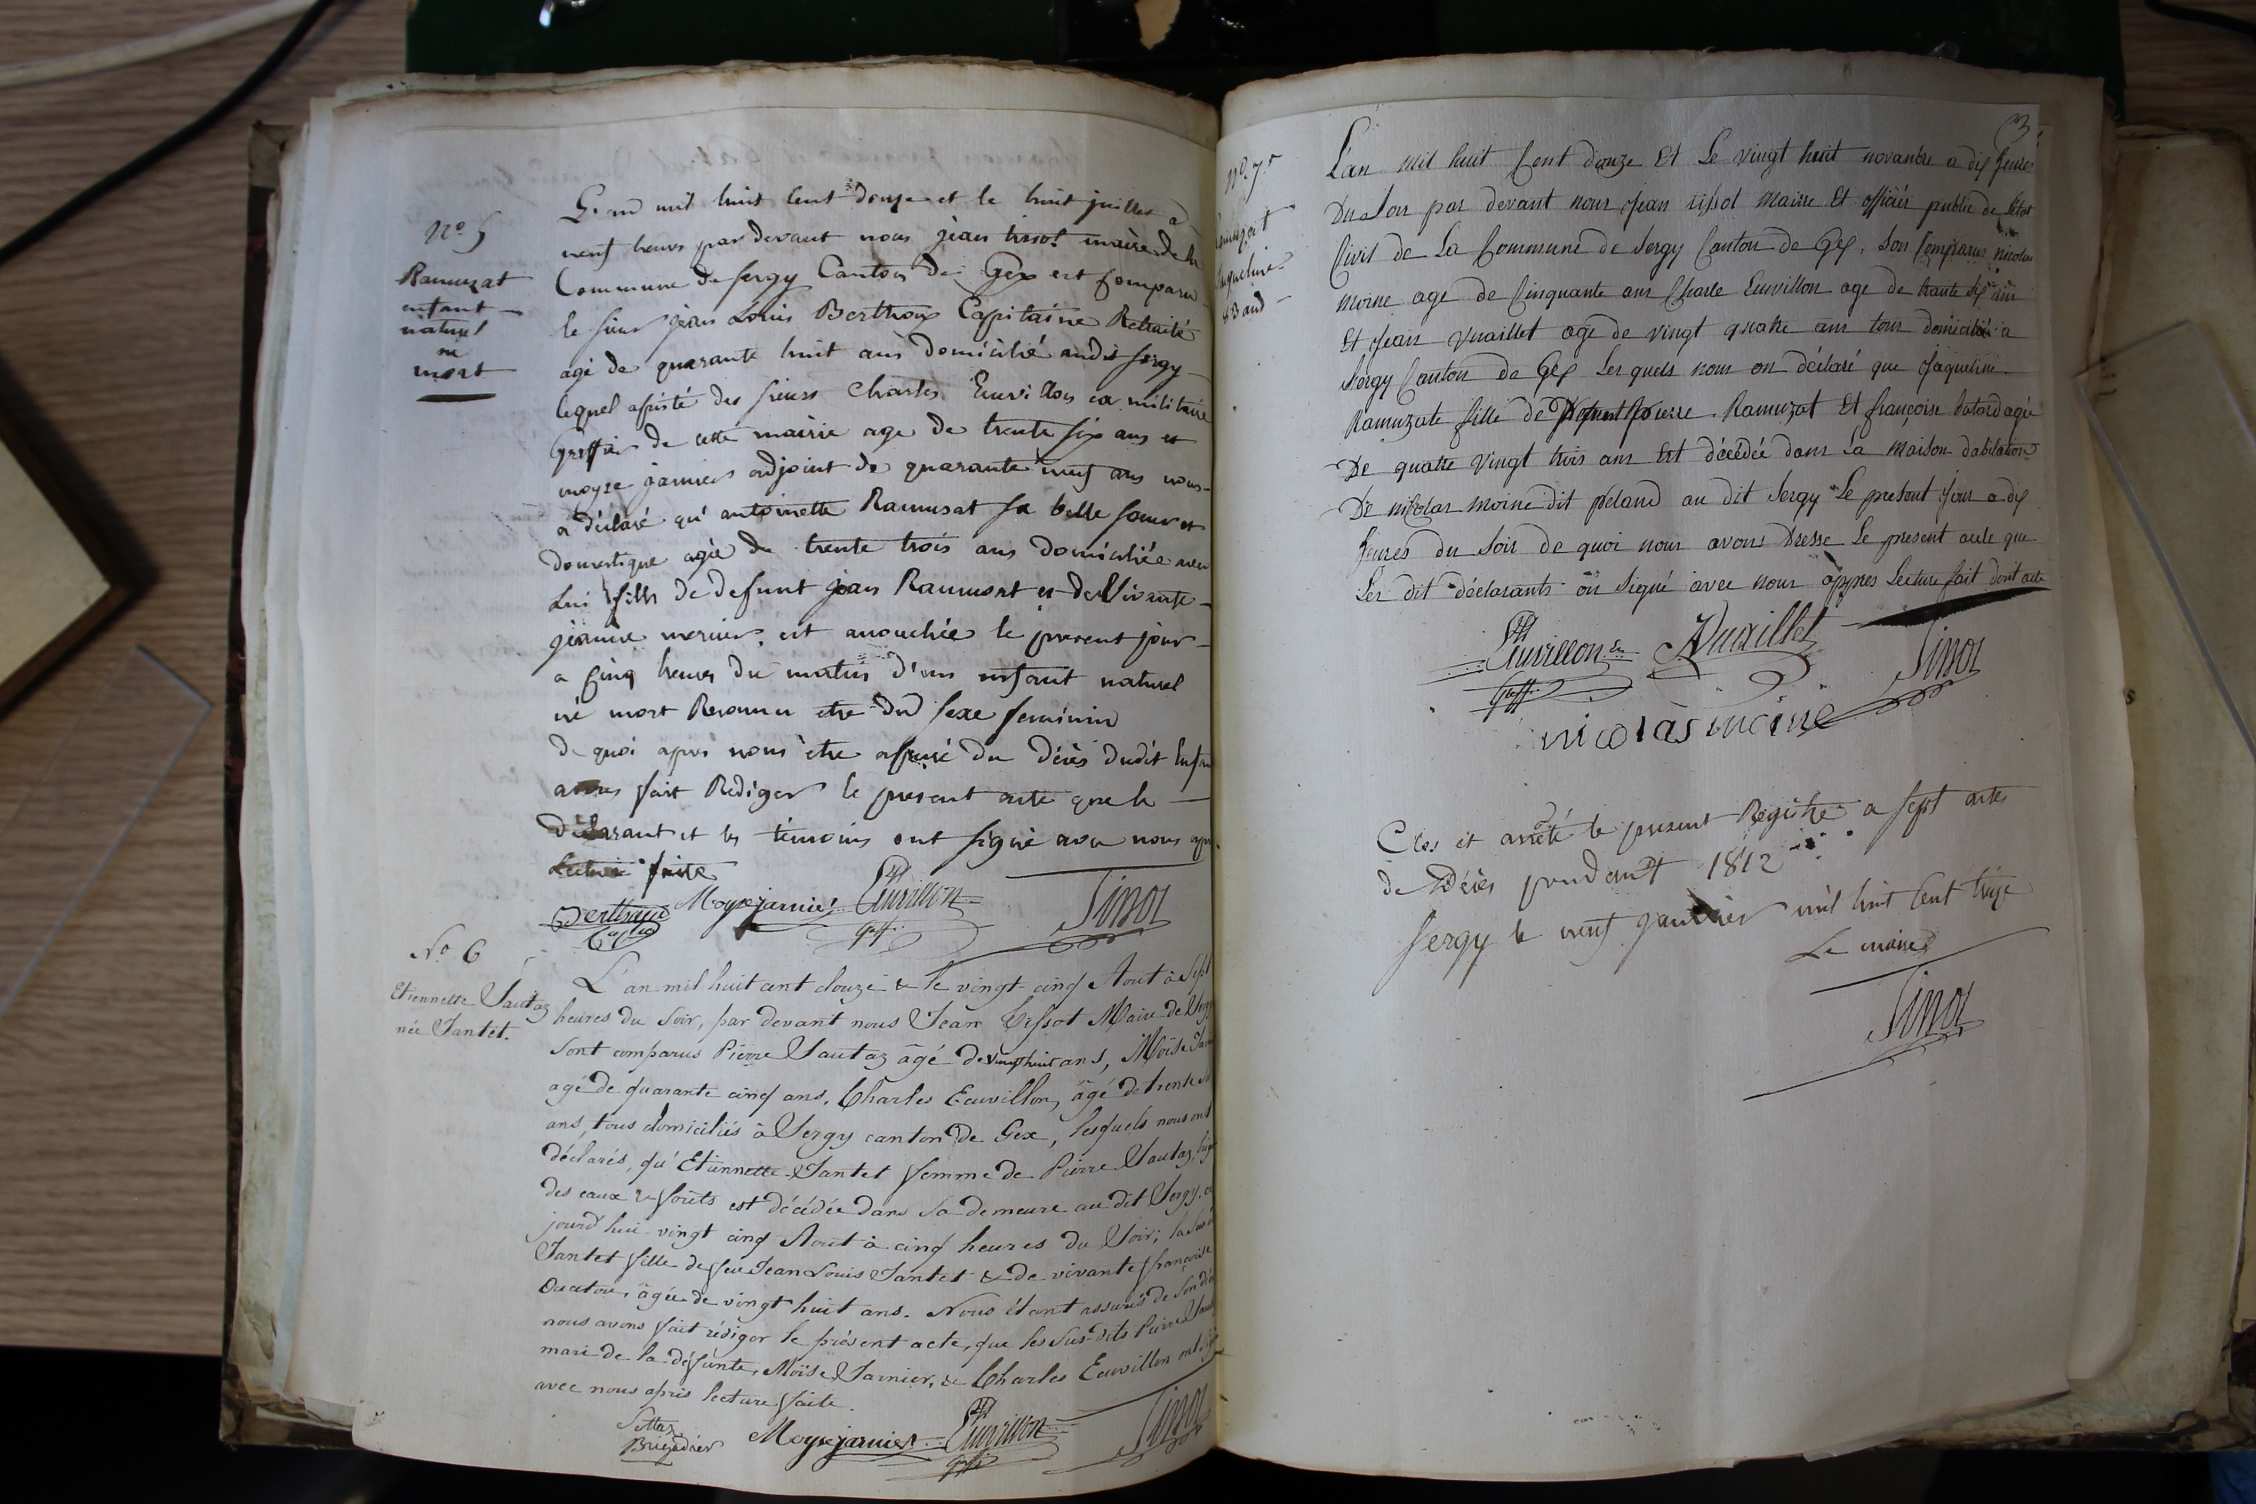 N.o 5
Ramuzat
enfant
naturel
né
mort
L'an mil huit cent douze et le huit juillet à
neuf heures par devant nous jean tissot maire de la
Commune de sergy Canton de Gex est comparu
le sieur jean Louis Berthoux Capitaine Retraité
agé de quarante huit ans domicilié audit sergy
lequel assisté des sieurs Charles Euvrillon ex militaire
Greffier de cette mairie age de trente six ans et
moyse janier adjoint de quarante neuf ans nous
a déclaré qu'antoinette Ramusat sa belle soeur et
domestique agée de trente trois ans domiciliée avec
Lui fille de defunt jean Ramusat et de Vivante
jeanne mercier est accouchée le present jour
a cinq heures du matin d'un enfant naturel
né mort Reconnu etre du sexe feminin
de quoi apres nous etre assuré du décès dudit Enfan
avons fait Rediger le present acte que le
déclarant et les témoins ont signé avec nous apr
Lecture faite
Moyse janier Euvrillon Tissot
greff.
N.o 6
Etiennette Sautaz
née Jantet.
L'an mil huit cent douze & le vingt cinq Aout à sept
heures du soir, par devant nous Jean Tissot Maire de Serg
sont comparus Pierre Sautaz âgé de vingt huit ans, Moïse Jan
agé de quarante cinq ans, Charles Euvrillon, âgé de trente
ans, tous domiciliés à Sergy canton de Gex, lesquels nous ont
déclarés, qu'Etiennette Jantet femme de Pierre Sautaz,
des eaux & forêts est décédée dans sa demeure au dit Sergy,
jourd'hui vingt cinq Aout à cinq heures du Soir; la sus
Jantet fille de feu Jean Louis Jantet & de vivante françoise
âgée de vingt huit ans. Nous étant assurés de son dé
nous avons fait rédiger le présent acte, que les sus-dits Pierre Saut
mari de la défunte, Moïse Janier, & Charles Euvrillon ont sig
avec nous après lecture faite.
Brigadier Moyse janier Euvrillon Tissot
greff.
3
N.o 7
L'an mil huit Cent douze Et Le vingt huit novanbre a dix heures
Du Soir par devant nous jean tissot maire Et officier public de l'état
Civil de La Commune de Sergy Canton de Gex, Son Comparus nicolas
moine age de Cinquante ans Charle Euvrillon age de trante six ans
Et jean Vuaillet age de vingt quatre ans tous domiciliés a
Sergy Canton de Gex Les quels nous on déclaré que jaqueline
Ramuzate fille de pierre Ramuzat Et françoise agée
De quatre vingt trois ans Est décédée dans La maison dabitation
De nicolas moine dit au dit Sergy Le present jour a dix
heures du Soir de quoi nous avons Dresse Le present acte que
Les dit déclarants on Signé avec nous appres Lecture fait dont acte
Euvrillon Vuaillet Tissot
greff.
nicolas moine
Clos et arreté le present Registre a sept actes
de Décès pendant 1812
Sergy le neuf janvier mil huit cent treize
Le maire
Tissot